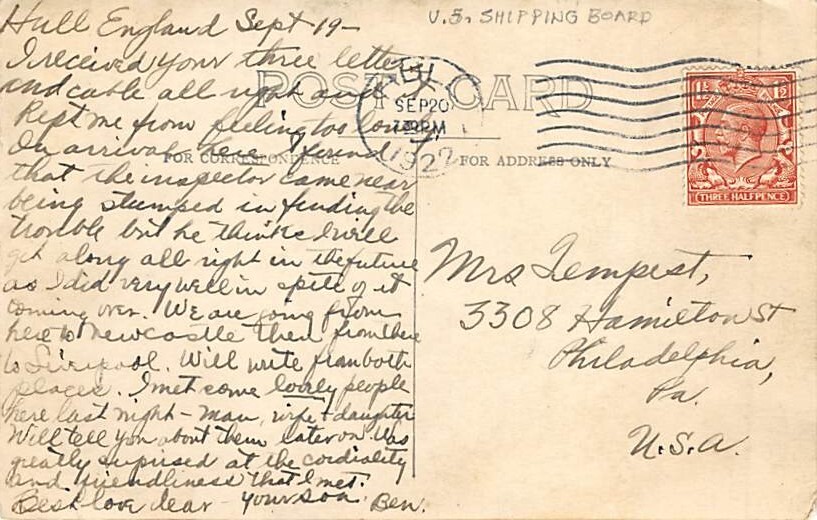 Hull England Sept 19-
I received your three letters
and cable all right and it
kept me from feeling too lonely.
On arrival here I found
that the inspector came near
being stumped in finding the
trouble but he thinks I will
get along all right in the future
as I did very well in spite of it
coming over. We are going from
here to Newcastle then from there
to Liverpool. Will write from both
places. I met some lovely people
here last night - man, wife + daughter
Will tell you about them later on. Was
greatly surprised at the cordiality
and friendliness that I met.
Best love dear - your son. Ben.
U.S. SHIPPING BOARD
POST CARD
FOR CORRESPONDENCE
FOR ADDRESS ONLY
SEP 20
7 30 PM
1922
1½ 1½
THREE HALFPENCE
Mrs Tempest,
3308 Hamilton St
Philadelphia,
Pa.
U.S.A.